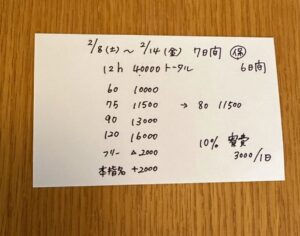 2/8(土)〜 2/14(金) 7日間 保
12h 40000トータル 6日間
60 10000
75 11500 → 80 11500
90 13000
120 16000
フリー △2000 10% 雑費
本指名 +2000 3000/1日